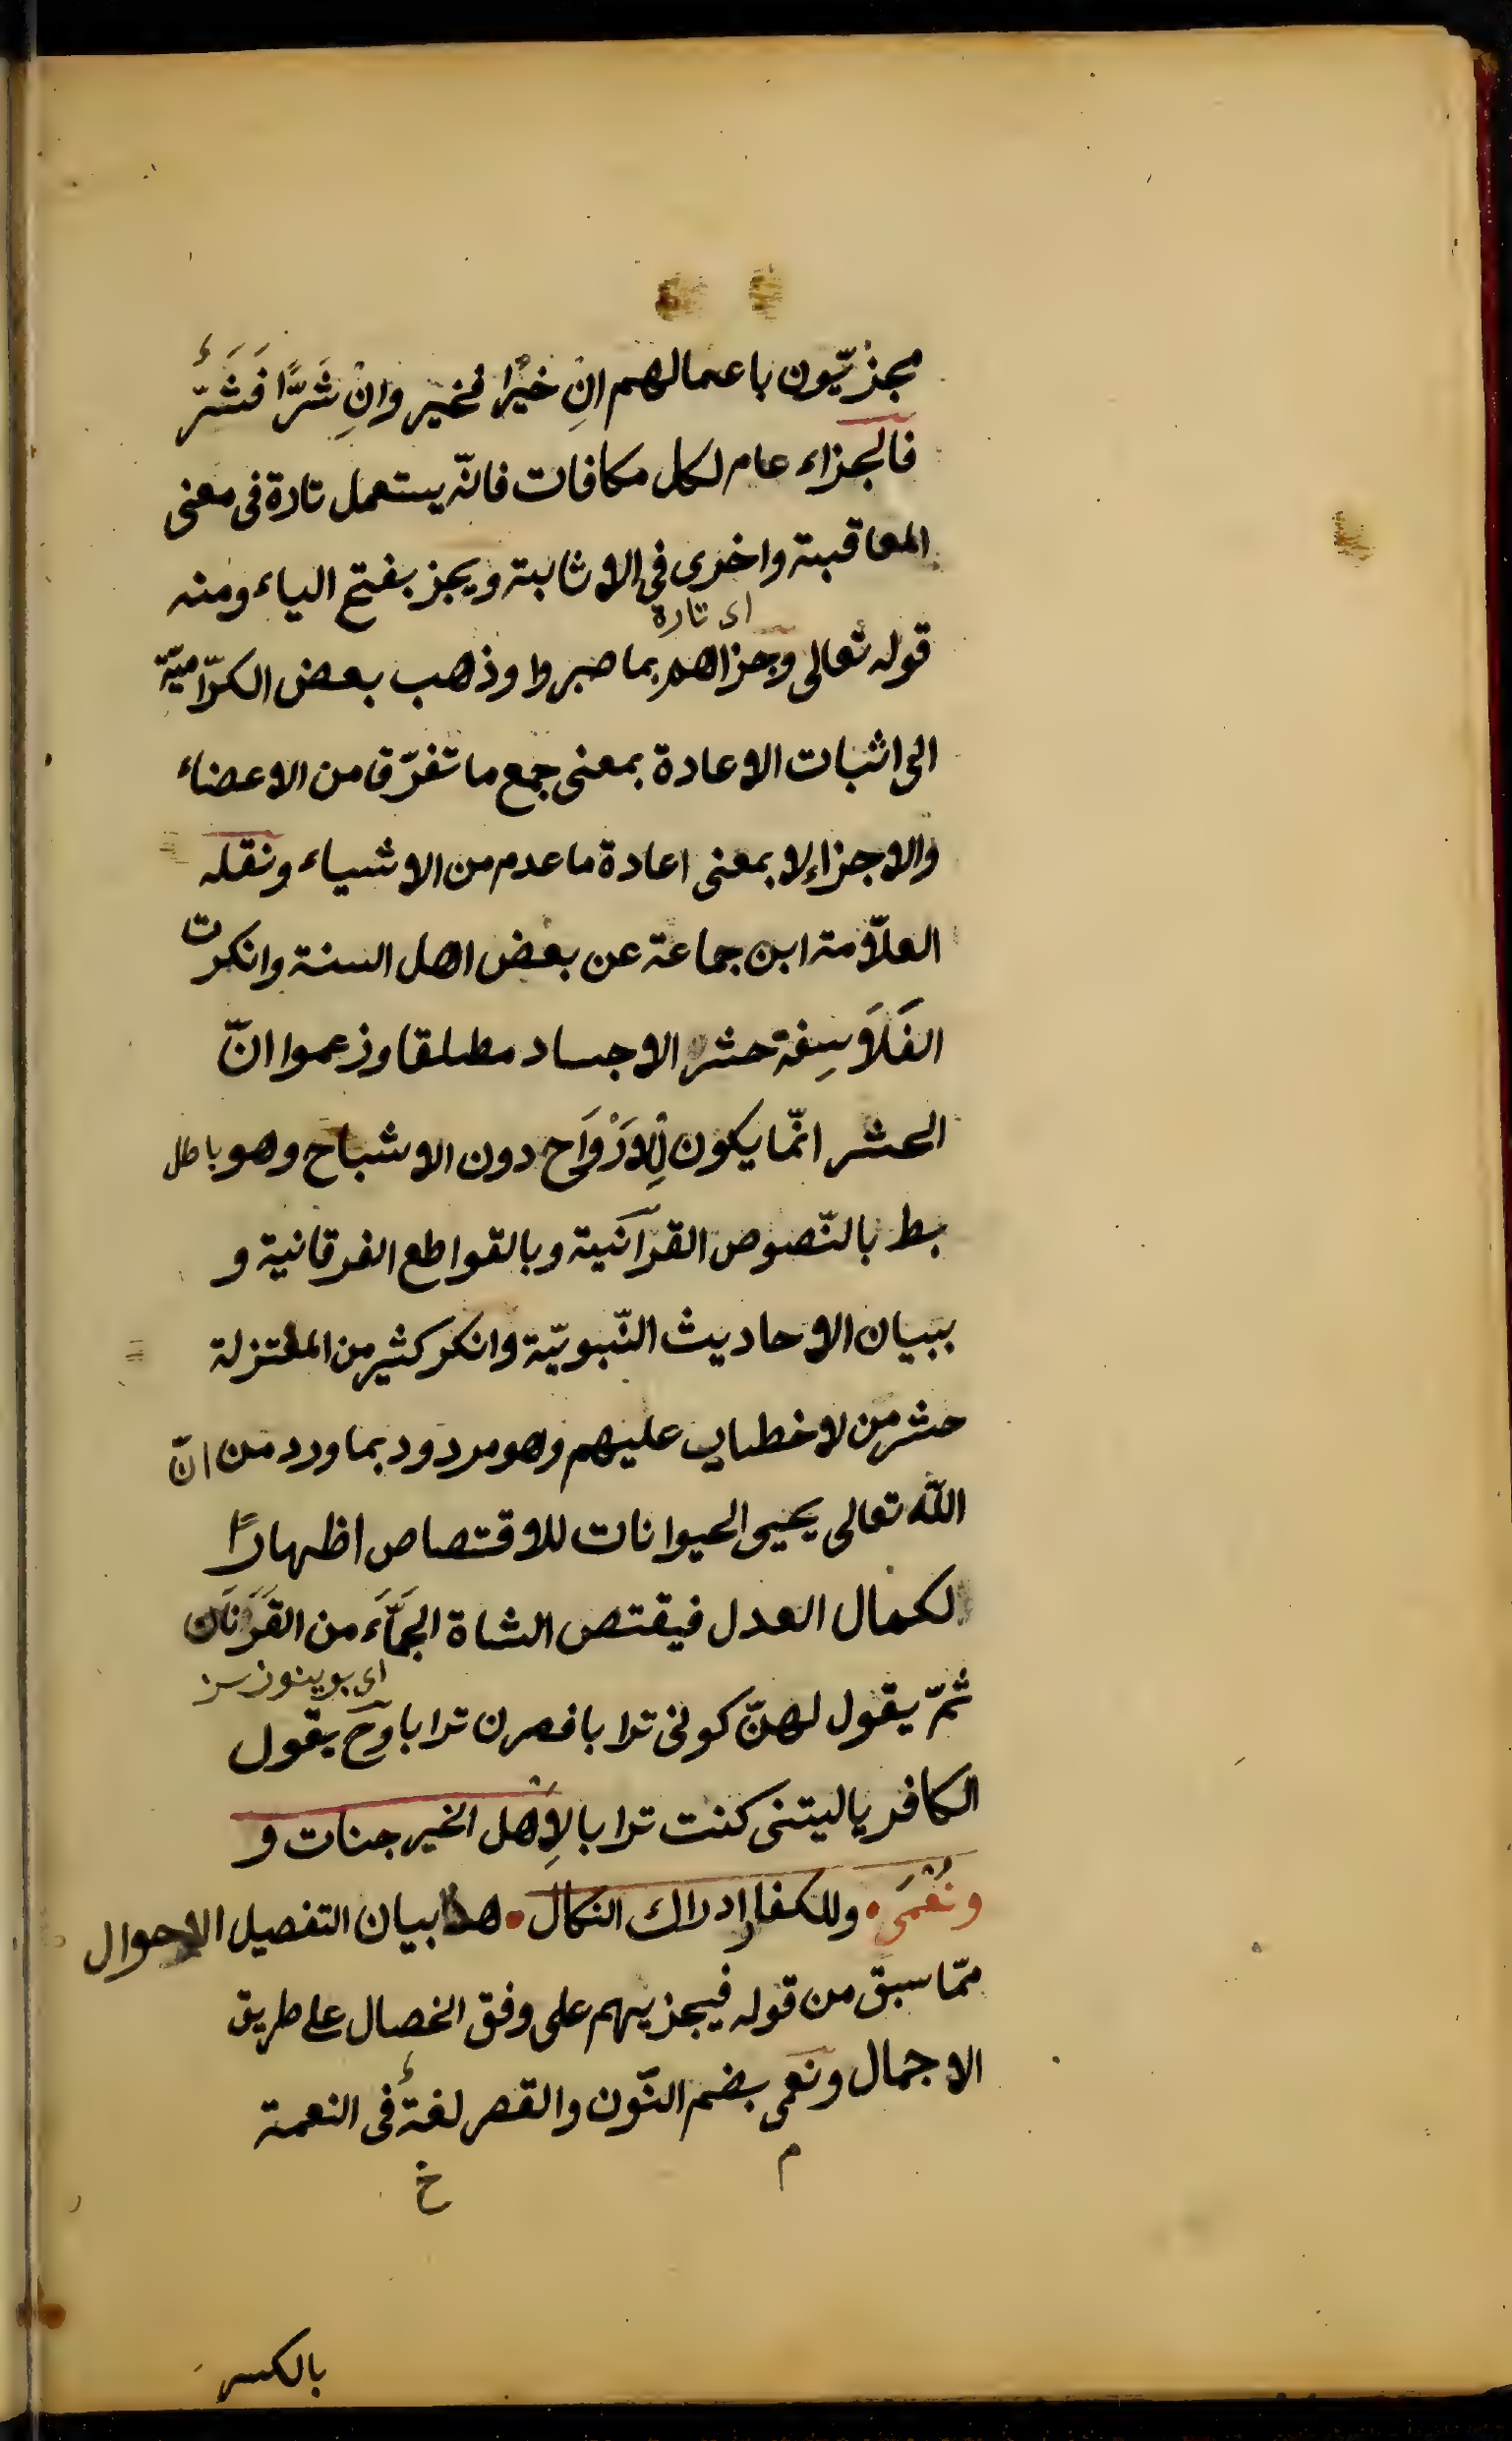 مجزيّون باعمالهم انِ خيْرًا فخير وانِ شَرًّا فَشَرٌّ
فالجزاء عام لكل مكافات فانّه يستعمل تارة فى معنى
المعاقبة واخرى فى الاثابة ويجز بفتح الياء ومنه
اى تارة
قوله تعالى وجزاهم بما صبروا وذهب بعض الكرّاميّة
الى اثبات الاعادة بمعنى جمع ما تفرّق من الاعضاء
والاجزاء لا بمعنى اعادة ما عدم من الاشياء ونقله
العلّامة ابن جماعة عن بعض اهل السنة وانكرت
الفَلَاسِفة حشر الاجساد مطلقا وزعموا انّ
الحشر انّما يكون لِلْاَرْوَاح دون الاشباح وهو باطل
بط بالنّصوص القرآنية وبالقواطع الفرقانية و
ببيان الاحاديث النّبويّة وانكر كثير من المعتزلة
حشر من لا خطاب عليهم وهو مردود بما ورد من انّ
اللّٰه تعالى يحيى الحيوانات للاقتصاص اظهارًا
لكمال العدل فيقتص الشاة الجَمَّاَء من القَرَْنَاَن
اى بوينوزسز
ثمّ يقول لهنّ كونى ترابا فصرن ترابا وح يقول
الكافر ياليتنى كنت ترابا لِاَهْل الخير جنات و
ونُعْمَى وللكفار ادراك النكال هذا بيان التفصيل الاحوال
ممّا سبق من قوله فيجزيهم على وفق الخصال على طريق
الاجمال ونعمى بضم النّون والقصر لغةٌ فى النعمة
م
خ
بالكسر